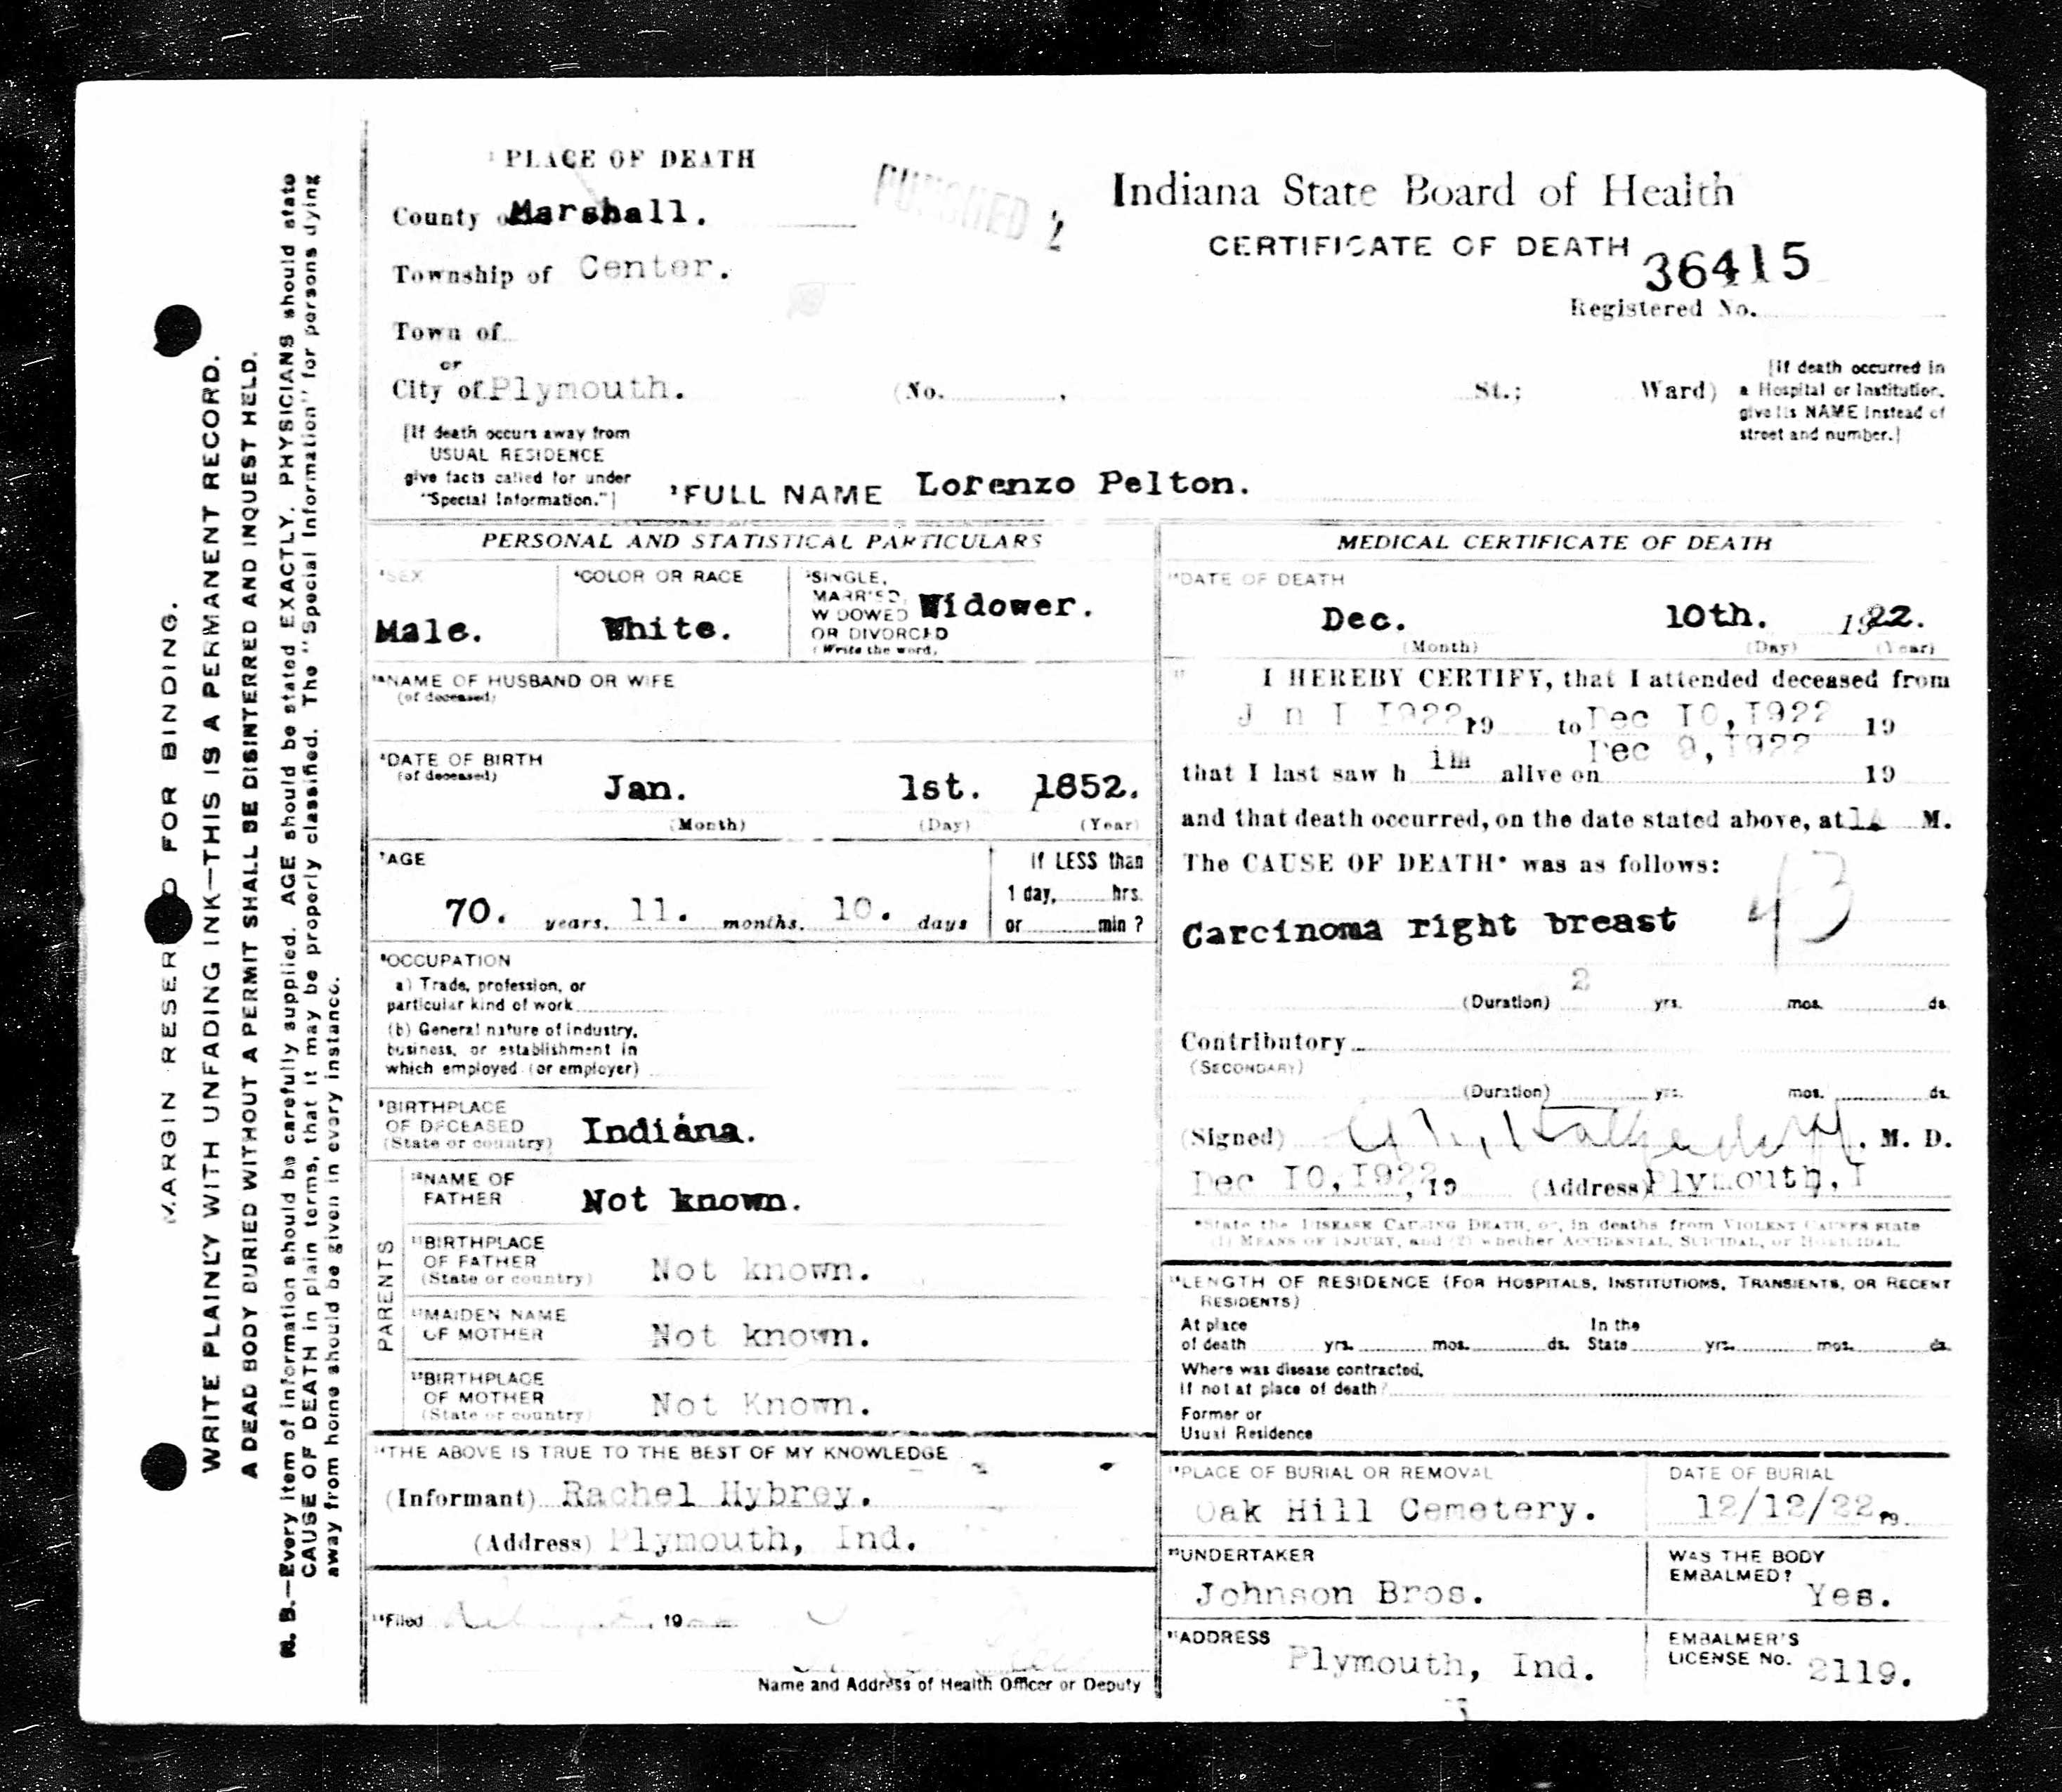 PLACE OF DEATH
County of Marshall.
PUNCHED 2
Indiana State Board of Health
CERTIFICATE OF DEATH
36415
Township of Center.
Registered No.
Town of
or
City of Plymouth. (No. , St.; Ward)
[If death occurred in
a Hospital or Institution,
give its NAME instead of
street and number.]
[If death occurs away from
USUAL RESIDENCE
give facts called for under
"Special Information."]
FULL NAME Lorenzo Pelton.
PERSONAL AND STATISTICAL PARTICULARS
SEX
Male.
COLOR OR RACE
White.
SINGLE,
MARRIED,
WIDOWED
OR DIVORCED
(Write the word,
Widower.
NAME OF HUSBAND OR WIFE
(of deceased)
DATE OF BIRTH
(of deceased)
Jan. 1st. 1852.
(Month) (Day) (Year)
AGE
70. years, 11. months, 10. days
If LESS than
1 day, hrs.
or min ?
OCCUPATION
a) Trade, profession, or
particular kind of work
(b) General nature of industry,
business, or establishment in
which employed (or employer)
BIRTHPLACE
OF DECEASED
(State or country)
Indiana.
PARENTS
NAME OF
FATHER
Not known.
BIRTHPLACE
OF FATHER
(State or country)
Not known.
MAIDEN NAME
OF MOTHER
Not known.
BIRTHPLACE
OF MOTHER
(State or country)
Not Known.
THE ABOVE IS TRUE TO THE BEST OF MY KNOWLEDGE
(Informant) Rachel Hybrey.
(Address) Plymouth, Ind.
Filed , 19
Name and Address of Health Officer or Deputy
MEDICAL CERTIFICATE OF DEATH
DATE OF DEATH
Dec. 10th. 1922.
(Month) (Day) (Year)
I HEREBY CERTIFY, that I attended deceased from
J n I I922, 19 to Dec I0,I922 19
that I last saw h im alive on Dec 9, I922 19
and that death occurred, on the date stated above, at M.
The CAUSE OF DEATH* was as follows:
43
Carcinoma right breast
(Duration) 2 yrs. mos. ds.
Contributory
(SECONDARY)
(Duration) yrs. mos. ds.
(Signed) , M. D.
Dec I0,I922, 19 (Address) Plymouth, I
*State the DISEASE CAUSING DEATH, or, in deaths from VIOLENT CAUSES state
(1) MEANS OF INJURY, and (2) whether ACCIDENTAL, SUICIDAL, or HOMICIDAL.
LENGTH OF RESIDENCE (FOR HOSPITALS, INSTITUTIONS, TRANSIENTS, OR RECENT
RESIDENTS)
At place In the
of death yrs. mos. ds. State yrs. mos. ds.
Where was disease contracted,
If not at place of death?
Former or
Usual Residence
PLACE OF BURIAL OR REMOVAL
Oak Hill Cemetery.
DATE OF BURIAL
12/12/22, 19
UNDERTAKER
Johnson Bros.
WAS THE BODY
EMBALMED?
Yes.
ADDRESS
Plymouth, Ind.
EMBALMER'S
LICENSE NO. 2119.
MARGIN RESER D FOR BINDING.
WRITE PLAINLY WITH UNFADING INK—THIS IS A PERMANENT RECORD.
A DEAD BODY BURIED WITHOUT A PERMIT SHALL BE DISINTERRED AND INQUEST HELD.
N. B.—Every item of information should be carefully supplied. AGE should be stated EXACTLY. PHYSICIANS should state
CAUSE OF DEATH in plain terms, that it may be properly classified. The "Special Information" for persons dying
away from home should be given in every instance.